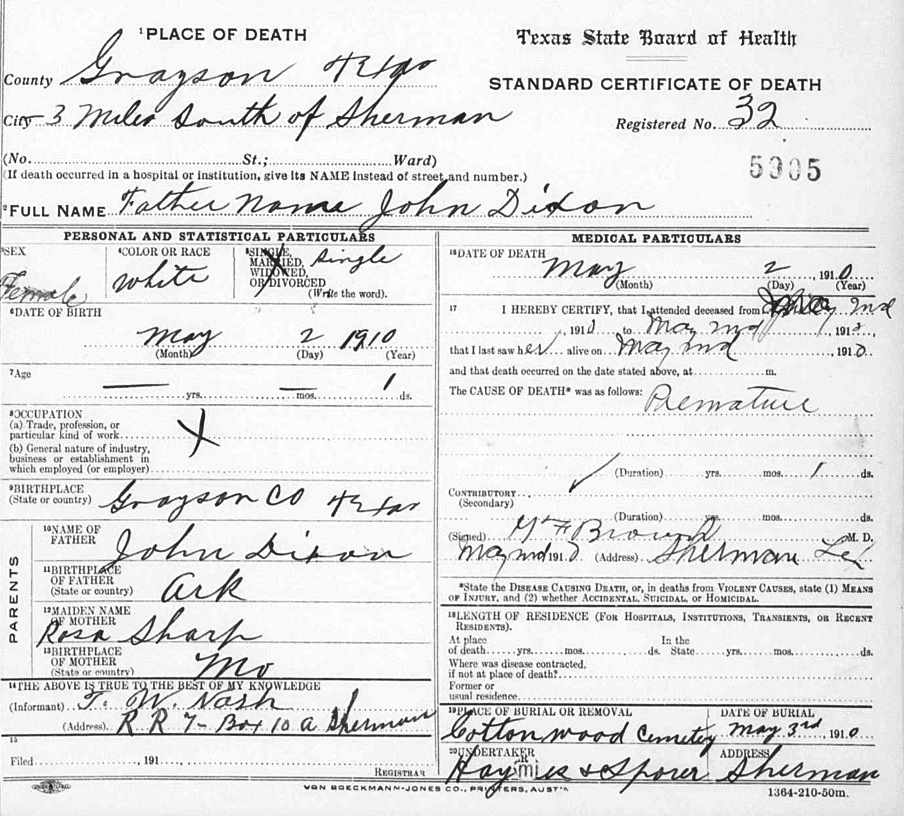 ¹PLACE OF DEATH
Texas State Board of Health
County Grayson Texas
STANDARD CERTIFICATE OF DEATH
City 3 Miles South of Sherman
Registered No. 32
(No. St.; Ward)
(If death occurred in a hospital or institution, give its NAME instead of street and number.)
5005
²FULL NAME Father Name John Dixon
PERSONAL AND STATISTICAL PARTICULARS
³SEX Female
⁴COLOR OR RACE white
⁵SINGLE, MARRIED, WIDOWED, OR DIVORCED single
(Write the word).
⁶DATE OF BIRTH
May 2 1910
(Month) (Day) (Year)
⁷Age
— yrs. — mos. 1 ds.
⁸OCCUPATION
(a) Trade, profession, or
particular kind of work X
(b) General nature of industry,
business or establishment in
which employed (or employer)
⁹BIRTHPLACE
(State or country) Grayson CO Texas
PARENTS
¹⁰NAME OF
FATHER John Dixon
¹¹BIRTHPLACE
OF FATHER
(State or country) Ark
¹²MAIDEN NAME
OF MOTHER
Rosa Sharp
¹³BIRTHPLACE
OF MOTHER
(State or country) Mo
¹⁴THE ABOVE IS TRUE TO THE BEST OF MY KNOWLEDGE
(Informant) T. W. Nash
(Address) R R 7- Box 10 A Sherman
¹⁵
Filed 191
REGISTRAR
MEDICAL PARTICULARS
¹⁶DATE OF DEATH
May 2 1910
(Month) (Day) (Year)
¹⁷ I HEREBY CERTIFY, that I attended deceased from May 2nd
1910 to May 2nd 191
that I last saw her alive on May 2nd 1910
and that death occurred on the date stated above, at m.
The CAUSE OF DEATH* was as follows: Premature
(Duration) yrs. mos. 1 ds.
CONTRIBUTORY
(Secondary)
(Duration) yrs. mos. ds.
(Signed) F Brown M. D.
May 2nd 1910 (Address) Sherman
*State the DISEASE CAUSING DEATH, or, in deaths from VIOLENT CAUSES, state (1) MEANS
OF INJURY, and (2) whether ACCIDENTAL, SUICIDAL, or HOMICIDAL.
¹⁸LENGTH OF RESIDENCE (FOR HOSPITALS, INSTITUTIONS, TRANSIENTS, OR RECENT
RESIDENTS).
At place In the
of death yrs. mos. ds. State yrs. mos. ds.
Where was disease contracted,
if not at place of death?
Former or
usual residence
¹⁹PLACE OF BURIAL OR REMOVAL DATE OF BURIAL
Cotton wood Cemetery May 3rd 1910
²⁰UNDERTAKER ADDRESS
& Sherman
VON BOECKMANN-JONES CO., PRINTERS, AUSTIN
1364-210-50m.